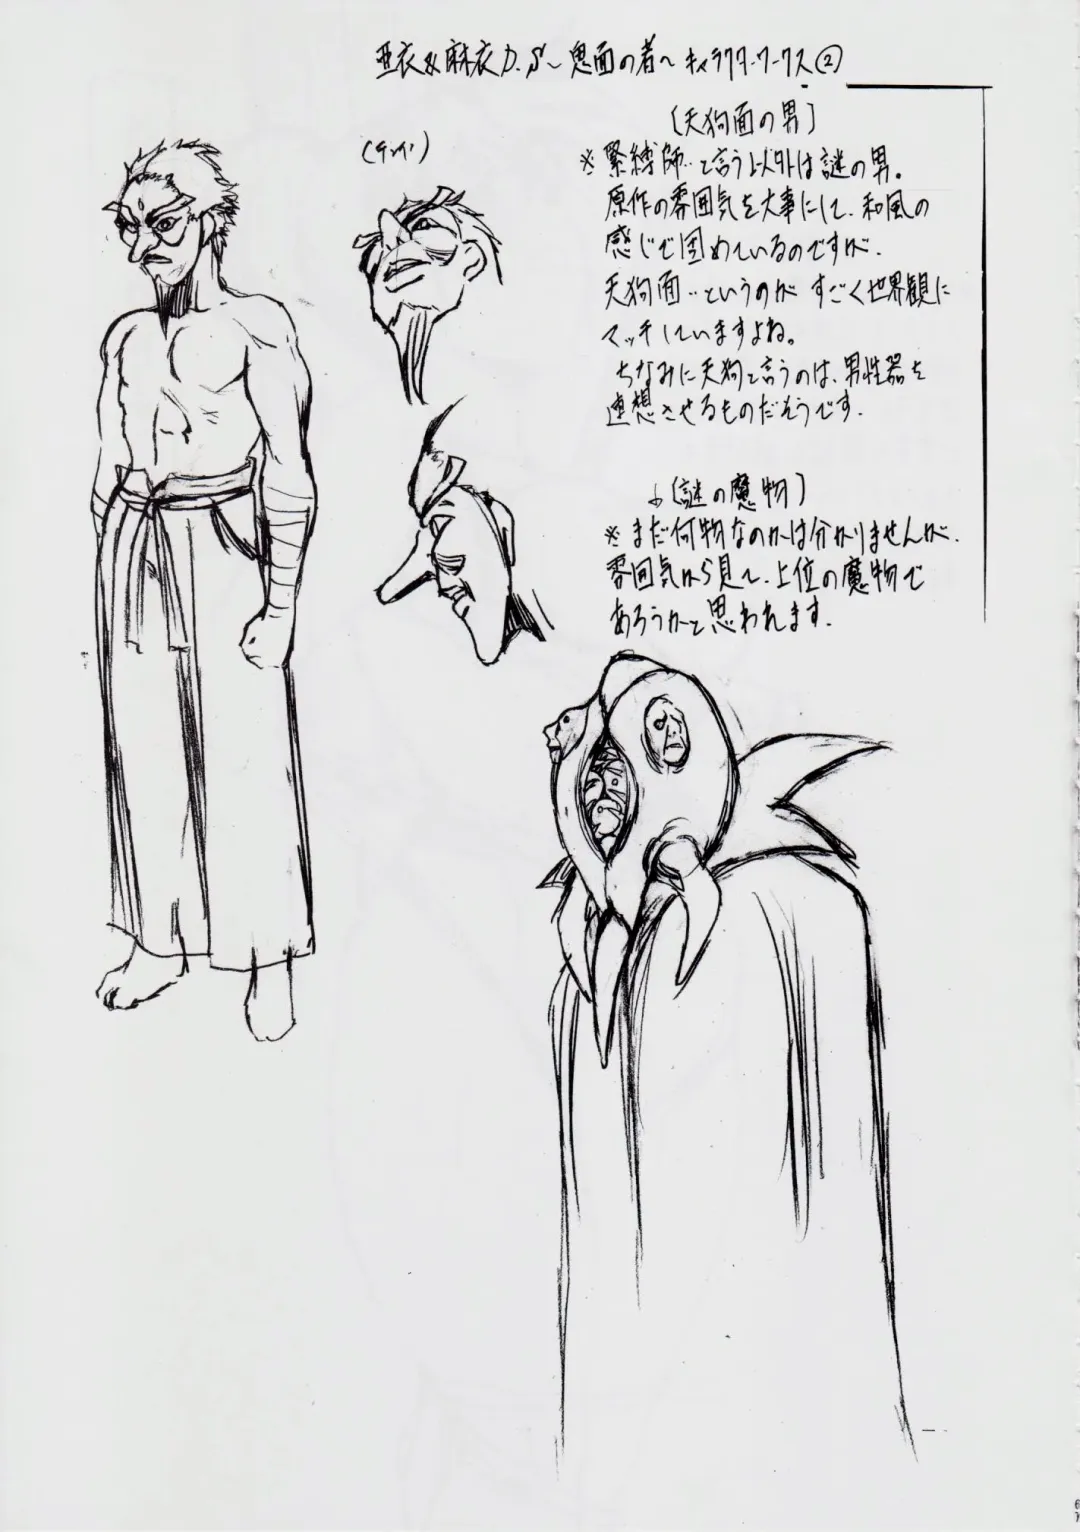 亜衣&麻衣D.S〜鬼面の者〜 キャラクターワークス②
〔天狗面の男〕
(テング)
※緊縛師‥と言う以外は謎の男。
原作の雰囲気を大事にして、和風の
感じで固めているのですが、
天狗面‥というのが すごく世界観に
マッチしていますよね。
ちなみに天狗と言うのは、男性器を
連想させるものだそうです。
↓〔謎の魔物〕
※まだ何物なのかは分かりませんが、
雰囲気から見て、上位の魔物で
あろうかと思われます。